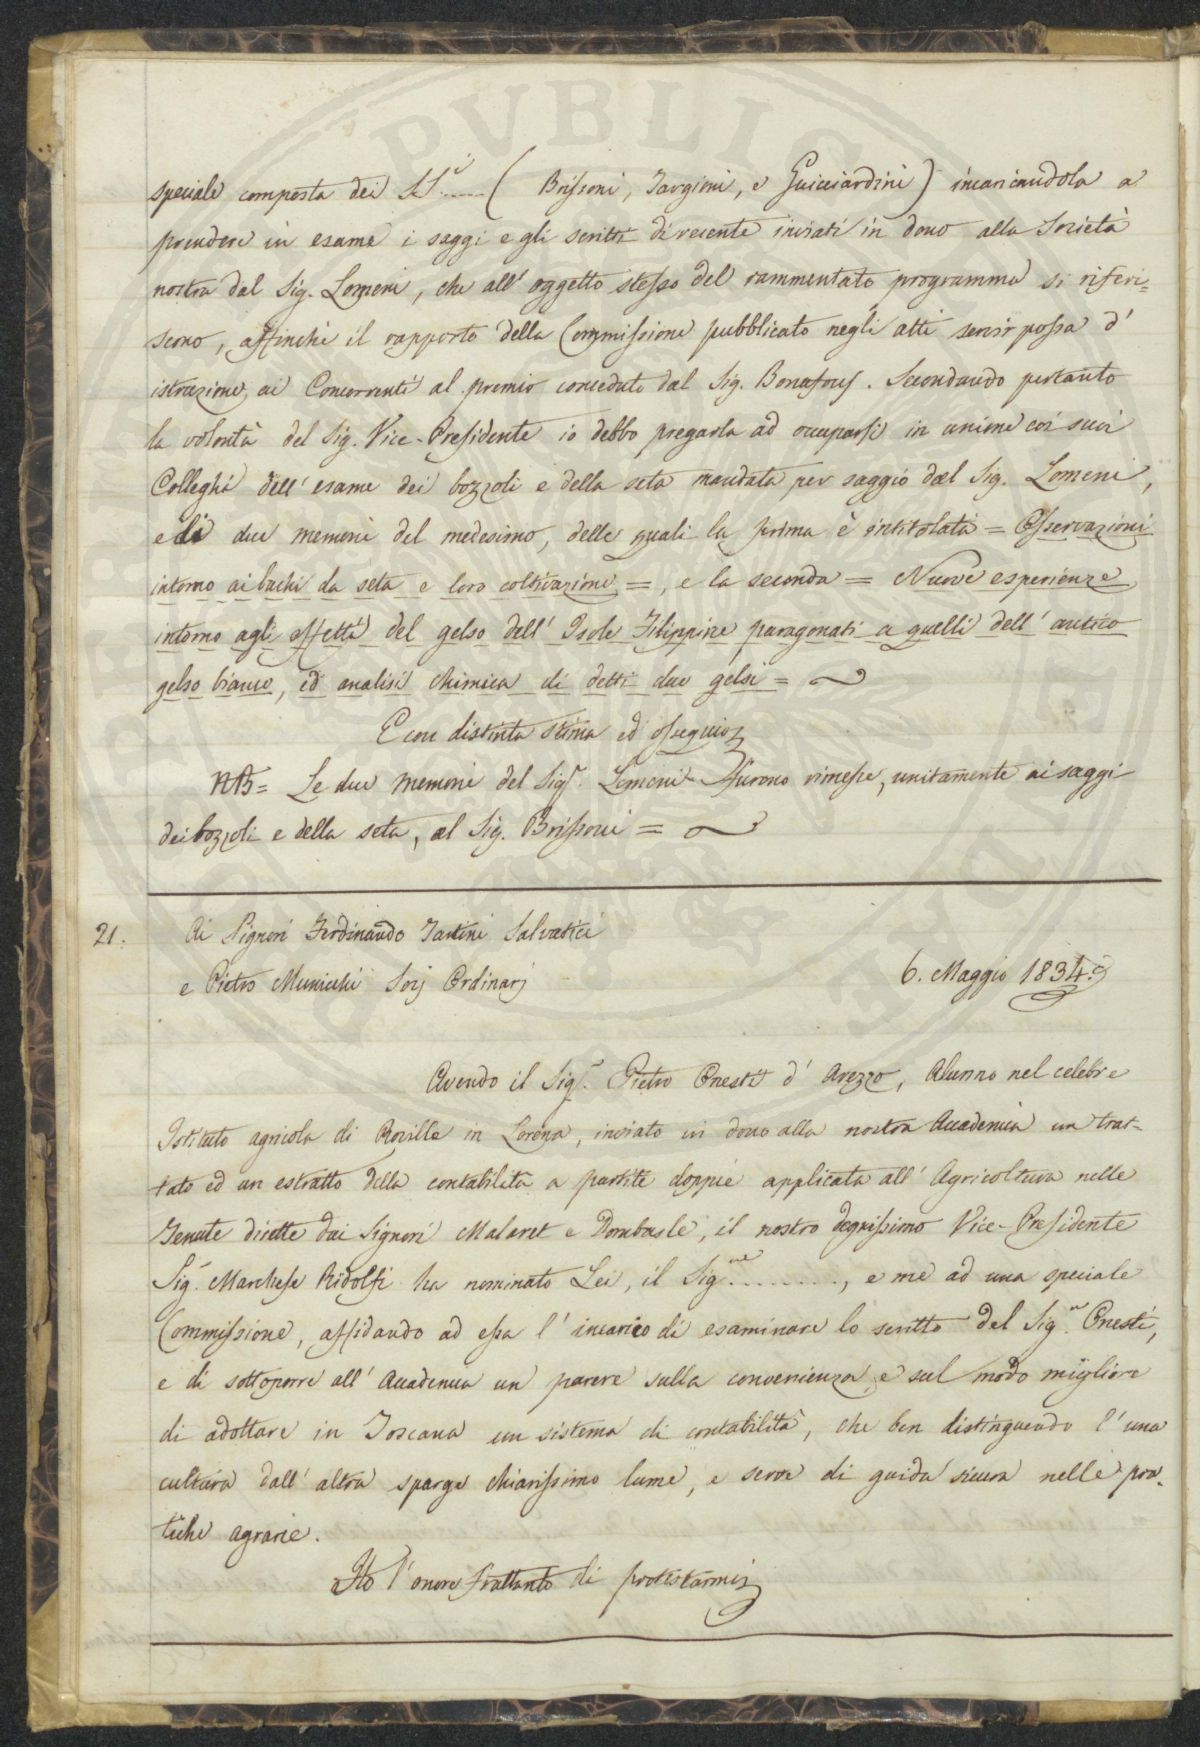 speciale composta dei SS.ri ..... ( Brissoni, Targioni, e Guicciardini ) incaricandola a
prendere in esame i saggi e gli scritti di recente inviati in dono alla Società
nostra dal Sig. Lomeni, che all' oggetto stesso del rammentato programma si riferi=
scono, affinchè il rapporto della Commissione pubblicato negli atti servir possa d'
istruzione ai Concorrenti al premio conceduto dal Sig. Bonafous. Secondando pertanto
la volontà del Sig. Vice-Presidente io debbo pregarla ad occuparsi in unione coi suoi
Colleghi dell' esame dei bozzoli e della seta mandata per saggio dal Sig. Lomeni,
e di due memorie del medesimo, delle quali la prima è intitolata = Osservazioni
intorno ai bachi da seta e loro coltivazione =, e la seconda = Nuove esperienze
intorno agli effetti del gelso dell' Isole Filippine paragonati a quelli dell' antico
gelso bianco, ed analisi chimica di detti due gelsi =
E con distinta stima ed ossequio
NB= Le due memorie del Sigr. Lomeni furono rimesse, unitamente ai saggi
dei bozzoli e della seta, al Sig. Brissoni =
21. Ai Signori Ferdinando Tartini Salvatici
e Pietro Municchi Socj Ordinarj
6. Maggio 1834.
Avendo il Sigr. Pietro Onesti d' Arezzo, Alunno nel celebre
Istituto agricola di Roville in Lorena, inviato in dono alla nostra Accademia un trat-
tato ed un estratto della contabilità a partite doppie applicata all' Agricoltura nelle
Tenute dirette dai Signori Malaret e Dombasle, il nostro degnissimo Vice-Presidente
Sigr. Marchese Ridolfi ha nominato Lei, il Sig.re ........., e me ad una speciale
Commissione, affidando ad essa l' incarico di esaminare lo scritto del Sig.re Onesti,
e di sottoporre all' Accademia un parere sulla convenienza, e sul modo migliore
di adottare in Toscana un sistema di contabilità, che ben distinguendo l' una
cultura dall' altra sparge chiarissimo lume, e serve di guida sicura nelle pra-
tiche agrarie.
Ho l' onore frattanto di protestarmi